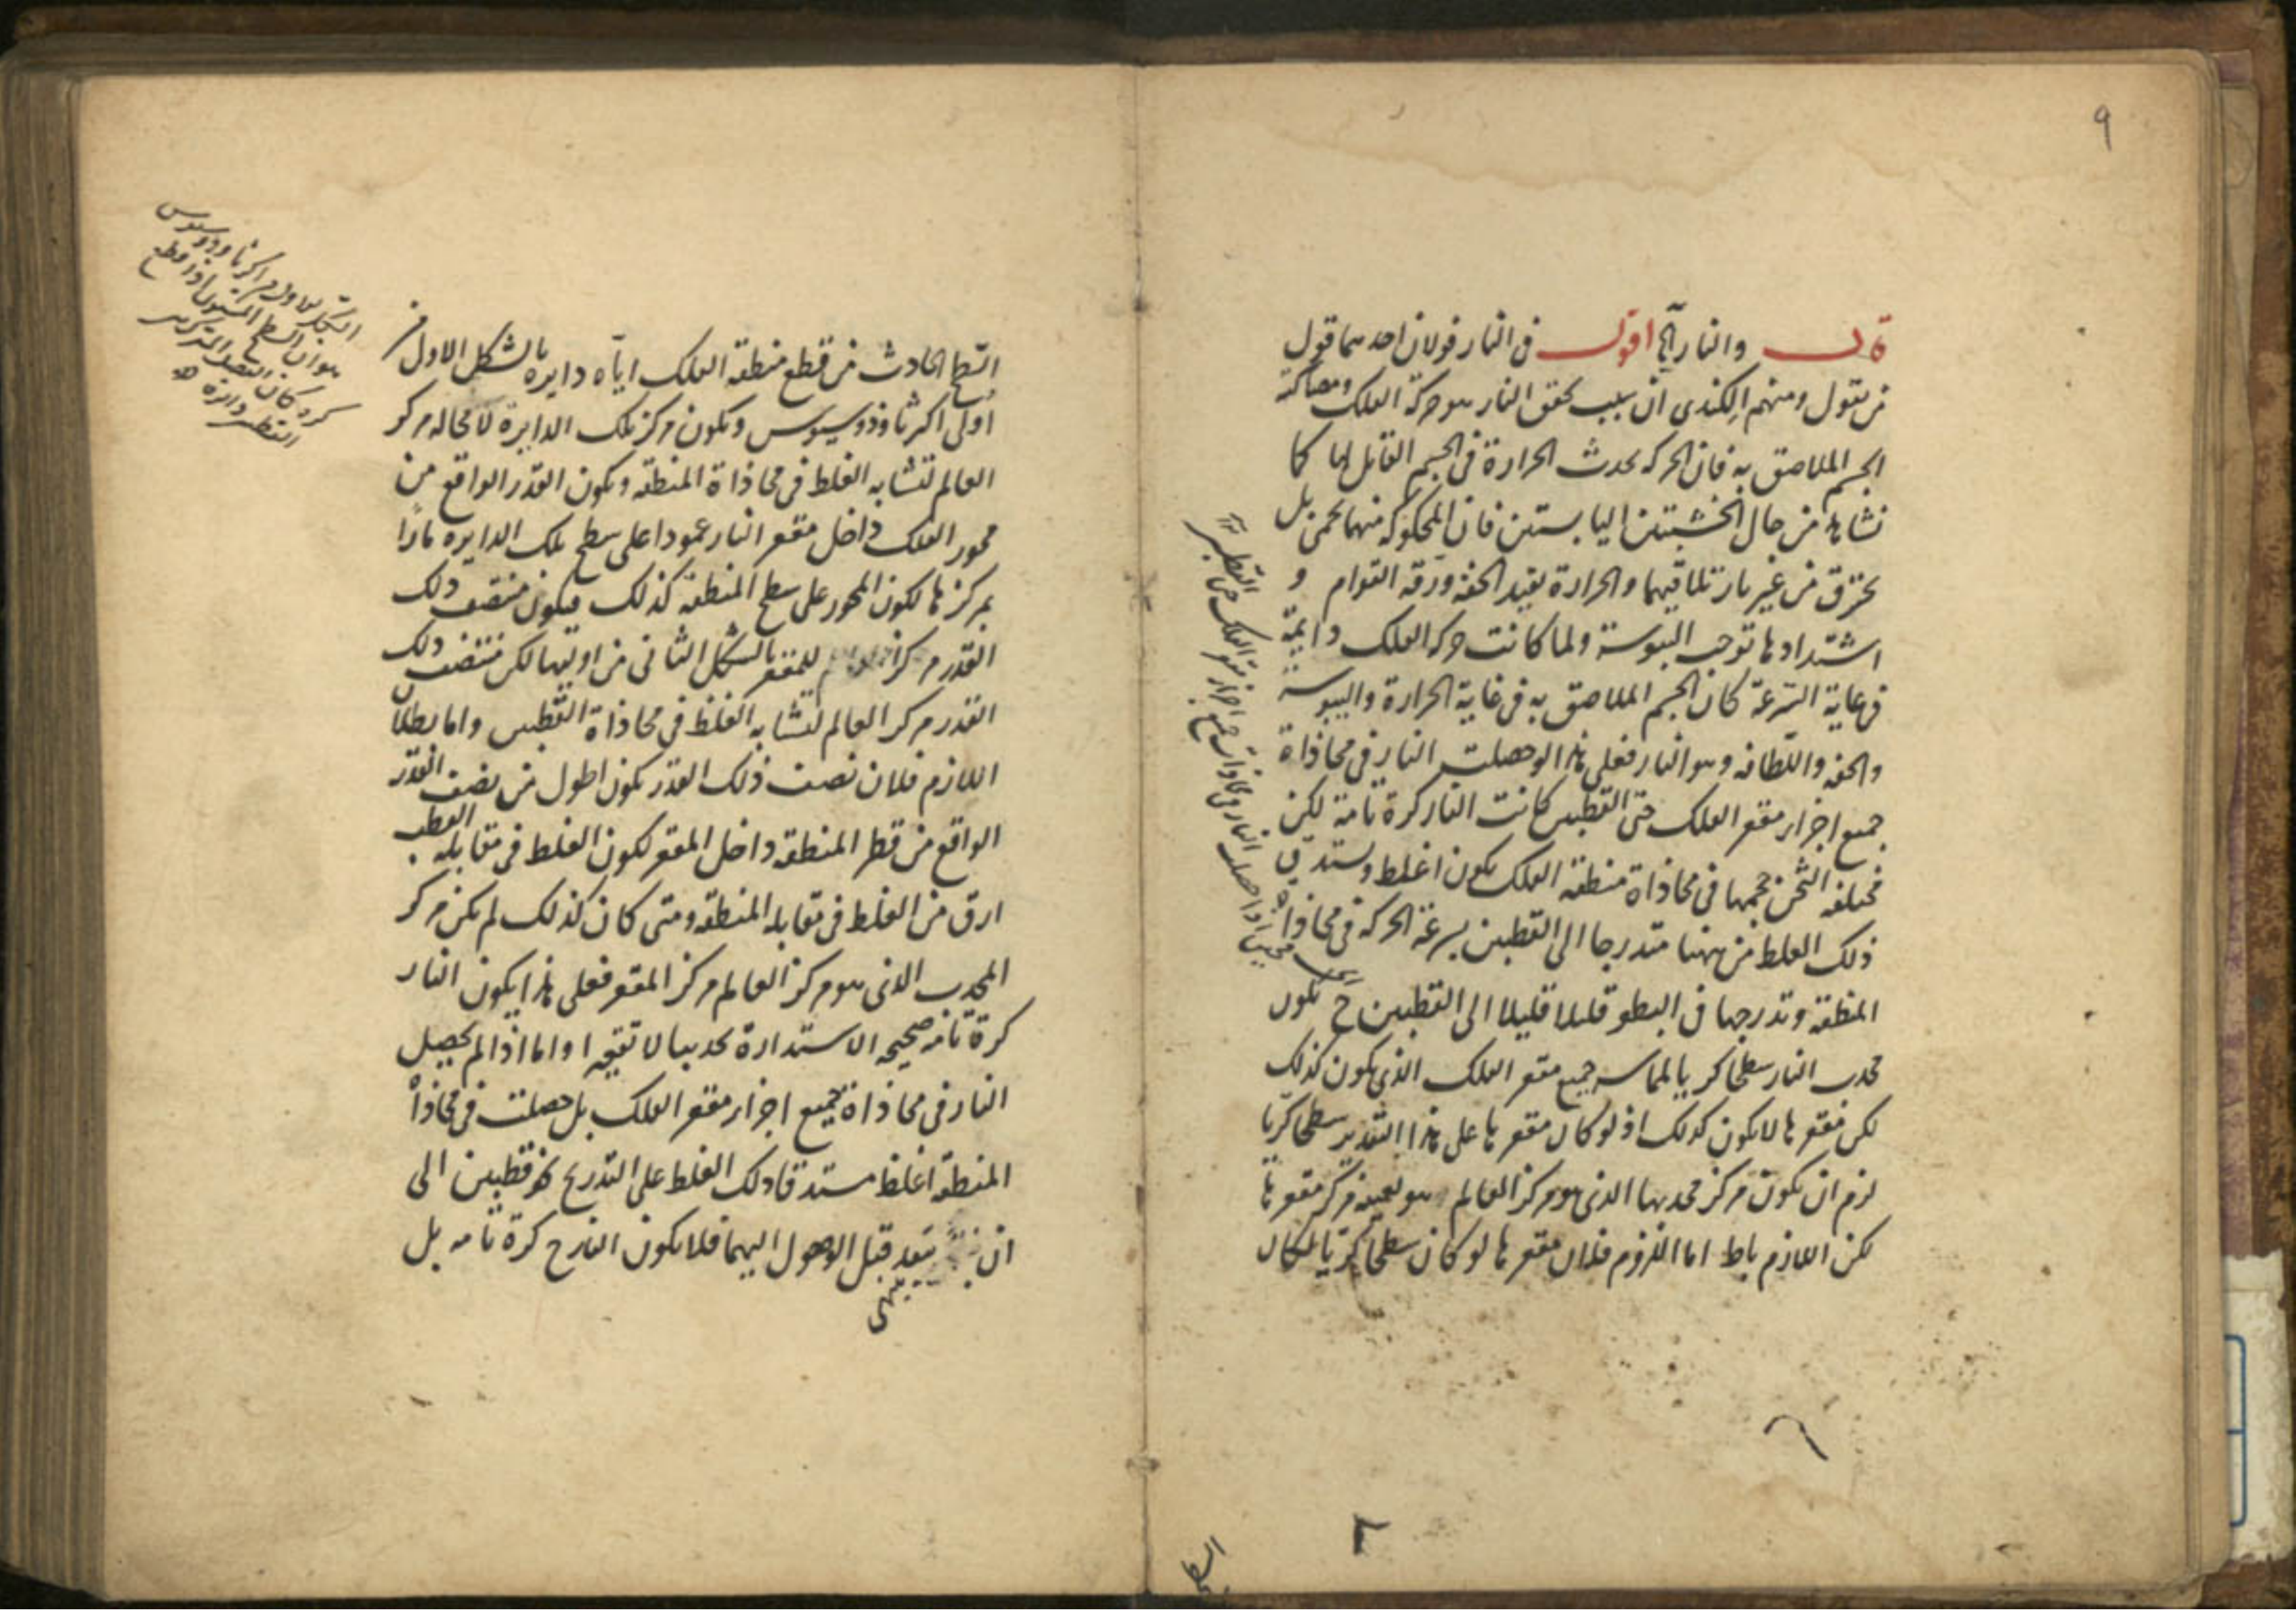 ٩
قال والنار الخ اقول فى النار قولان احدهما قول
من يقول ومنهم الكندى ان سبب تحقق النار هو حركة الفلك ومصاكة
الجسم الملاصق به فان الحركه تحدث الحرارة فى الجسم القابل لها كما
نشاهد من حال الخشبتين اليابستين فان المحكوكه منهما تحمى بل
تحترق من غير نار تلاقيهما والحرارة يفيد الخفه ورقه القوام و
اشتدادها توجب اليبوسة ولما كانت حركه الفلك دايمة
فى غاية السرعة كان الجسم الملاصق به فى غاية الحرارة واليبوسة
والخفه واللطافه وهو النار فعلى هذا لو حصلت النار فى محاذاة
جميع اجزاء مقعر الفلك حتى القطبين كانت النار كرة تامة لكن
مختلفه الثخن حجمها فى محاذاة منطقة الفلك يكون اغلظ ويستدق
ذلك الغلظ من ههنا متدرجا الى القطبين بسرعة الحركه فى محاذاة
المنطقه وتدرجها فى البطو قليلا قليلا الى القطبين ح يكون
محدب النار سطحا كريا لمماسه جميع مقعر الفلك الذى يكون كذلك
لكن مقعرها لا يكون كذلك اذ لو كان مقعرها على هذا التقدير سطحا كريا
لزم ان يكون مركز محدبها الذى هو مركز العالم هو بعينه مركز مقعرها
لكن اللازم باط اما اللزوم فلان مقعرها لو كان سطحا كريا لكان
السطح
السطح الحادث من قطع منطقة الفلك اياه دايره بالشكل الاول من
اولى اكر ثاوذوسيوس ويكون مركز تلك الدايرة لا محاله مركز
العالم لتشابه الغلظ فى محاذاة المنطقه ويكون القدر الواقع من
محور الفلك داخل مقعر النار عمودا على سطح تلك الدايره مارا
بمركزها لكون المحور على سطح المنطقه كذلك فيكون منتصف ذلك
القدر مركز للمقعر بالشكل الثانى من اوليها لكن منتصف ذلك
القدر مركز العالم لتشابه الغلظ فى محاذاة القطبين واما بطلان
اللازم فلان نصف ذلك القدر يكون اطول من نصف القدر
الواقع من قطر المنطقه داخل المقعر لكون الغلظ فى مقابله القطب
ارق من الغلظ فى مقابله المنطقه ومتى كان كذلك لم يكن مركز
المحدب الذى هو مركز العالم مركز المقعر فعلى هذا يكون النار
كرة تامه صحيحه الاستدارة تحديبا لا تقعيرا واما اذا لم يحصل
النار فى محاذاة جميع اجزاء مقعر الفلك بل حصلت فى محاذاة
المنطقه اغلظ مستدقا ذلك الغلظ على التدريج نحو قطبين الى
ان ينتهى بعد قبل الوصول اليهما فلا يكون النار ح كرة تامه بل
الشكل الاول من اكر ثاوذوسيوس
هو ان السطح المستوى اذا قطع
كره كان الفصل المشترك
دائرة